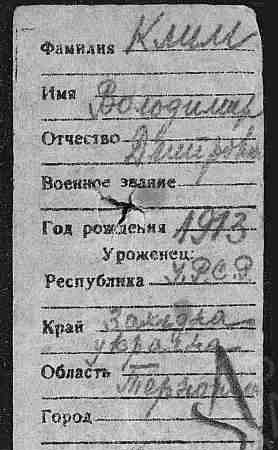 Фамилия Клим
Имя Володимир
Отчество Дмитрови
Военное звание
Год рождения 1913
Уроженец:
Республика У.Р.С.Р.
Край Західна
україна
Область Терно
Город